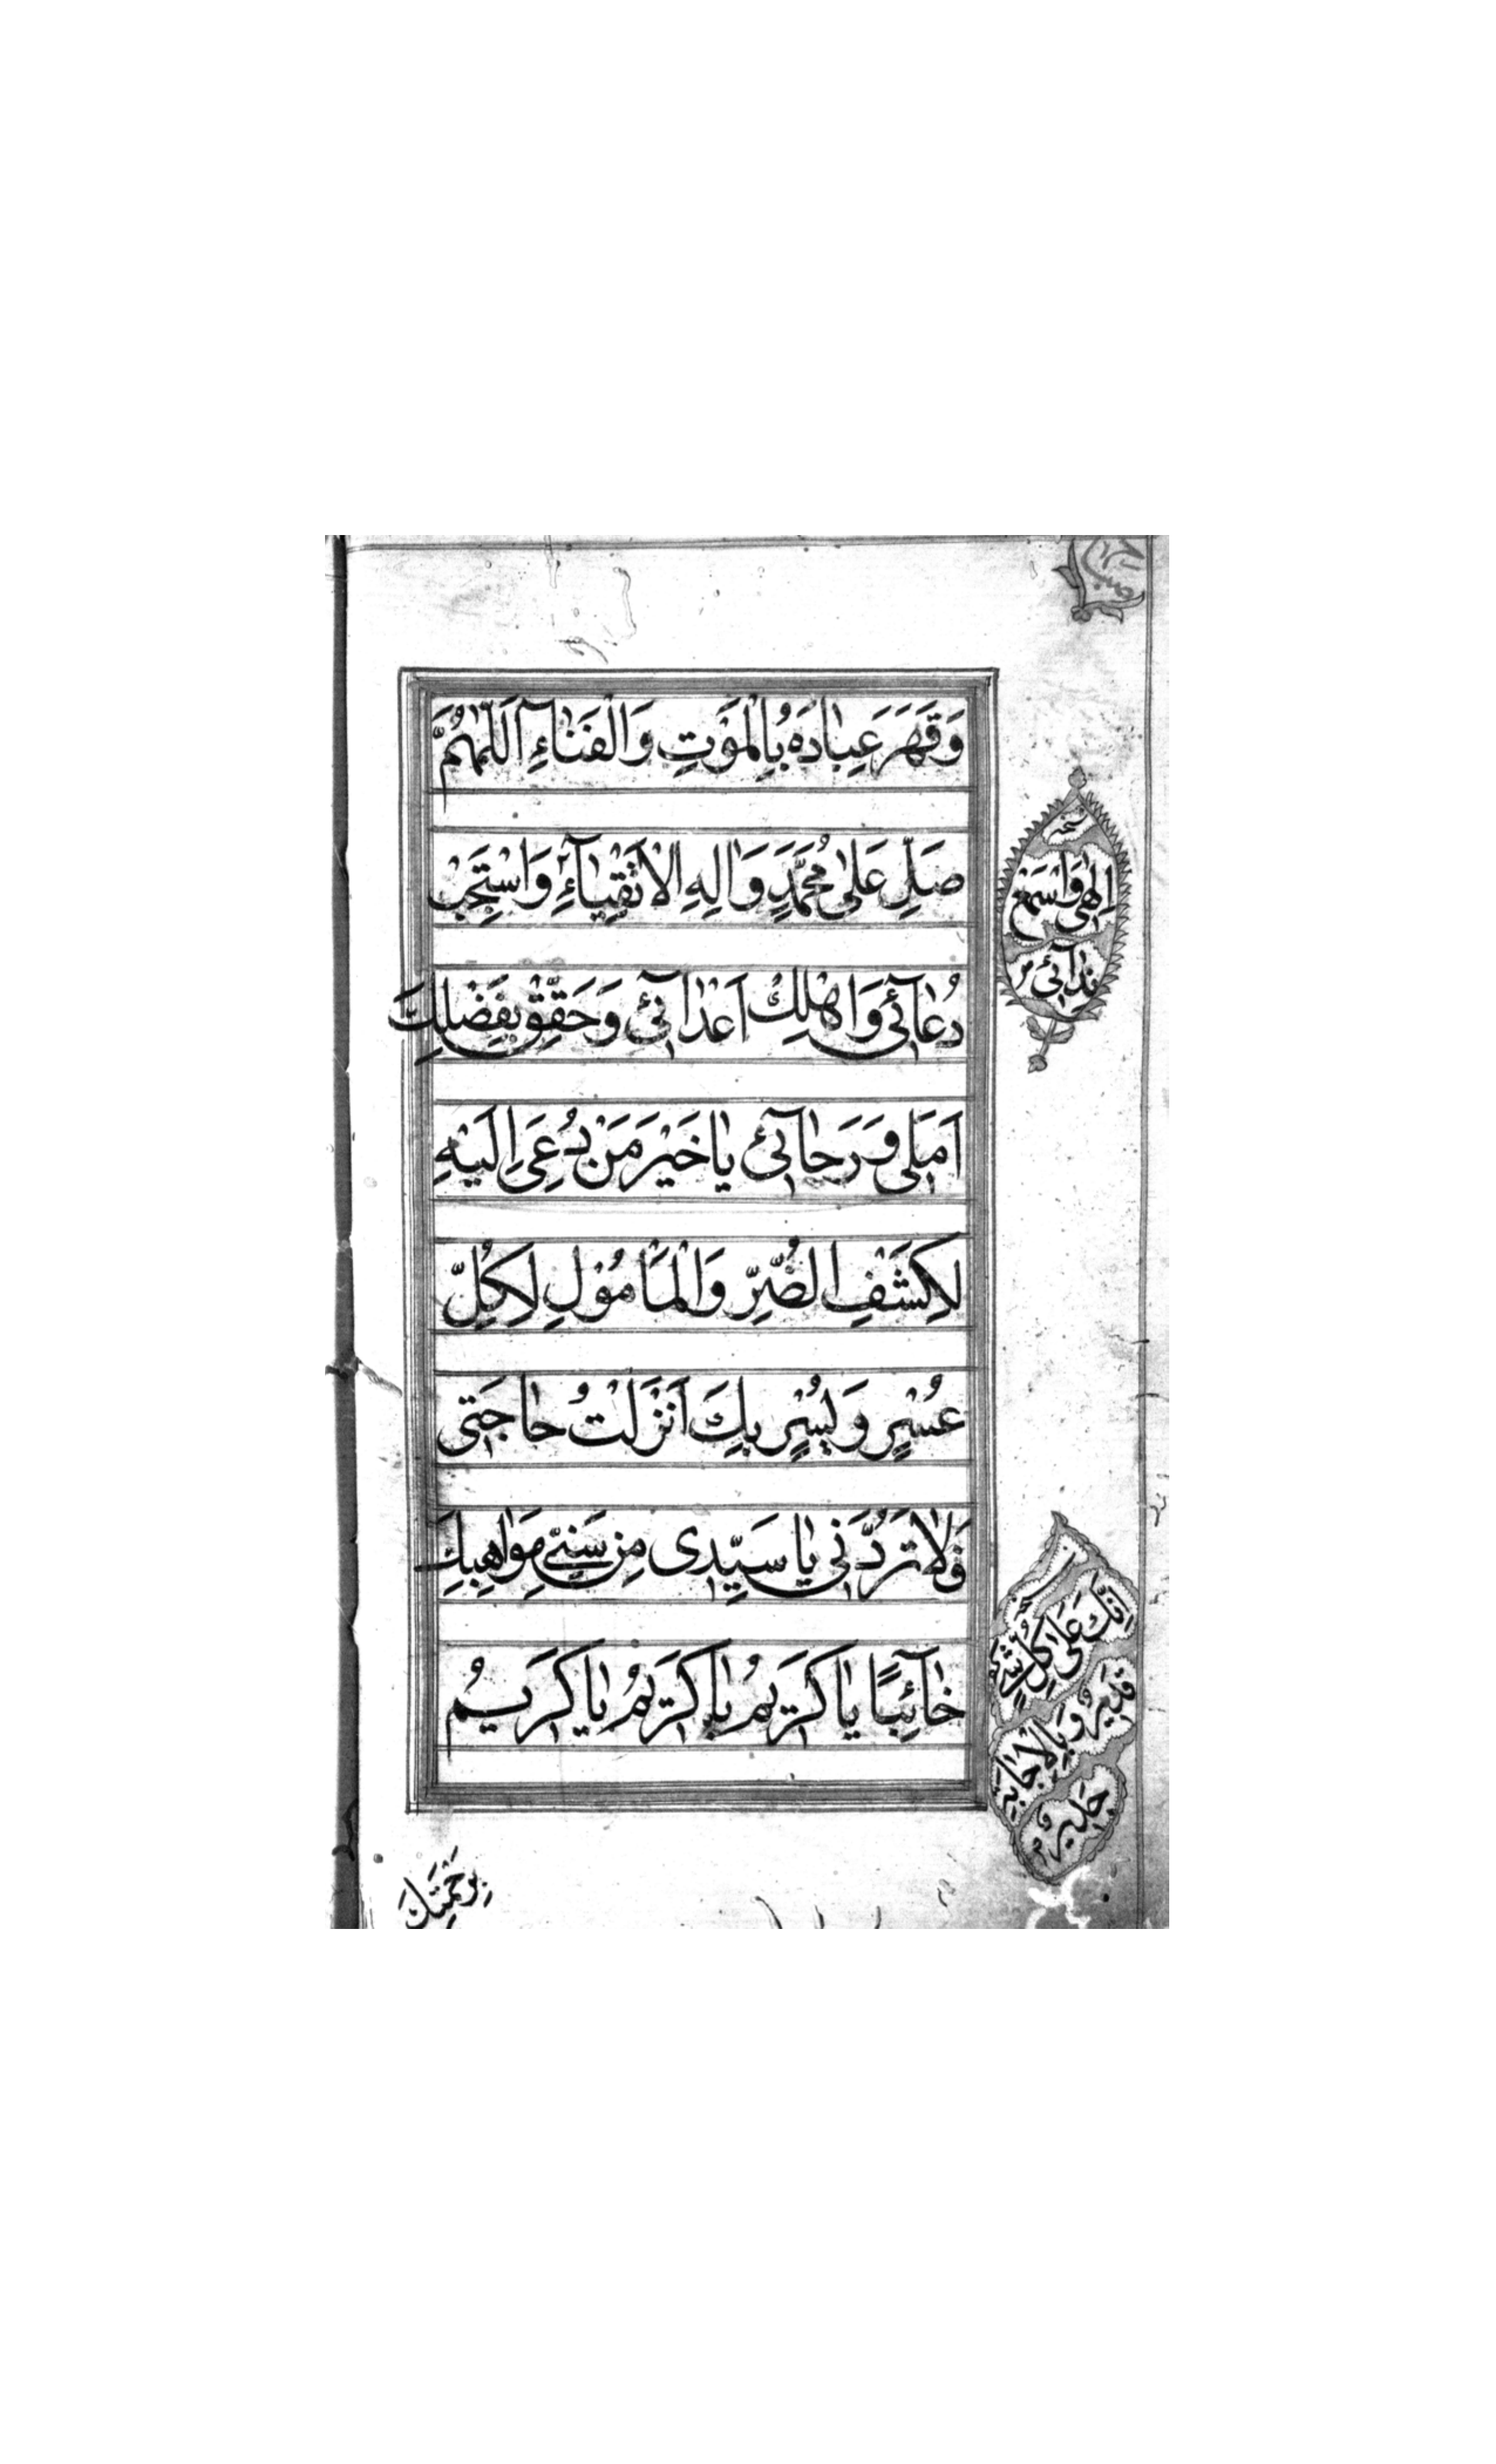 وَقَهَرَ عِبٰادَهُ بِالْمَوْتِ وَالْفَنٰاءِ اَللّٰهُمَّ
صَلِّ عَلىٰ مُحَمَّدٍ وَاٰلِهِ الْاَتْقِيٰاءِ وَاسْتَجِبْ
دُعٰائَى وَاَهْلِكْ اَعْدٰائَى وَحَقِّقْ بِفَضْلِكَ
اَمَلى وَرَجٰائَى يٰا خَيْرَ مَنْ دُعِىَ اِلَيْهِ
لِكَشْفِ الضُّرِّ وَالْمَاْمُوْلِ لِكُلِّ
عُسْرٍ وَيُسْرٍ بِكَ اَنْزَلْتُ حٰاجَتى
وَلٰا تَرُدَّنى يٰا سَيِّدى مِنْ سَنِىِّ مَوٰاهِبِكَ
خٰائِبًا يٰا كَرَيمُ يٰا كَرَيمُ يٰا كَرَيمُ
اِلٰهى وَاسْمَعْ
نِدٰائَى
اِنَّكَ عَلىٰ كُلِّ شَىْءٍ
قَدِيرٌ وَبِالْاِجٰابَةِ
جَدِيرٌ
بِرَحْمَتِكَ